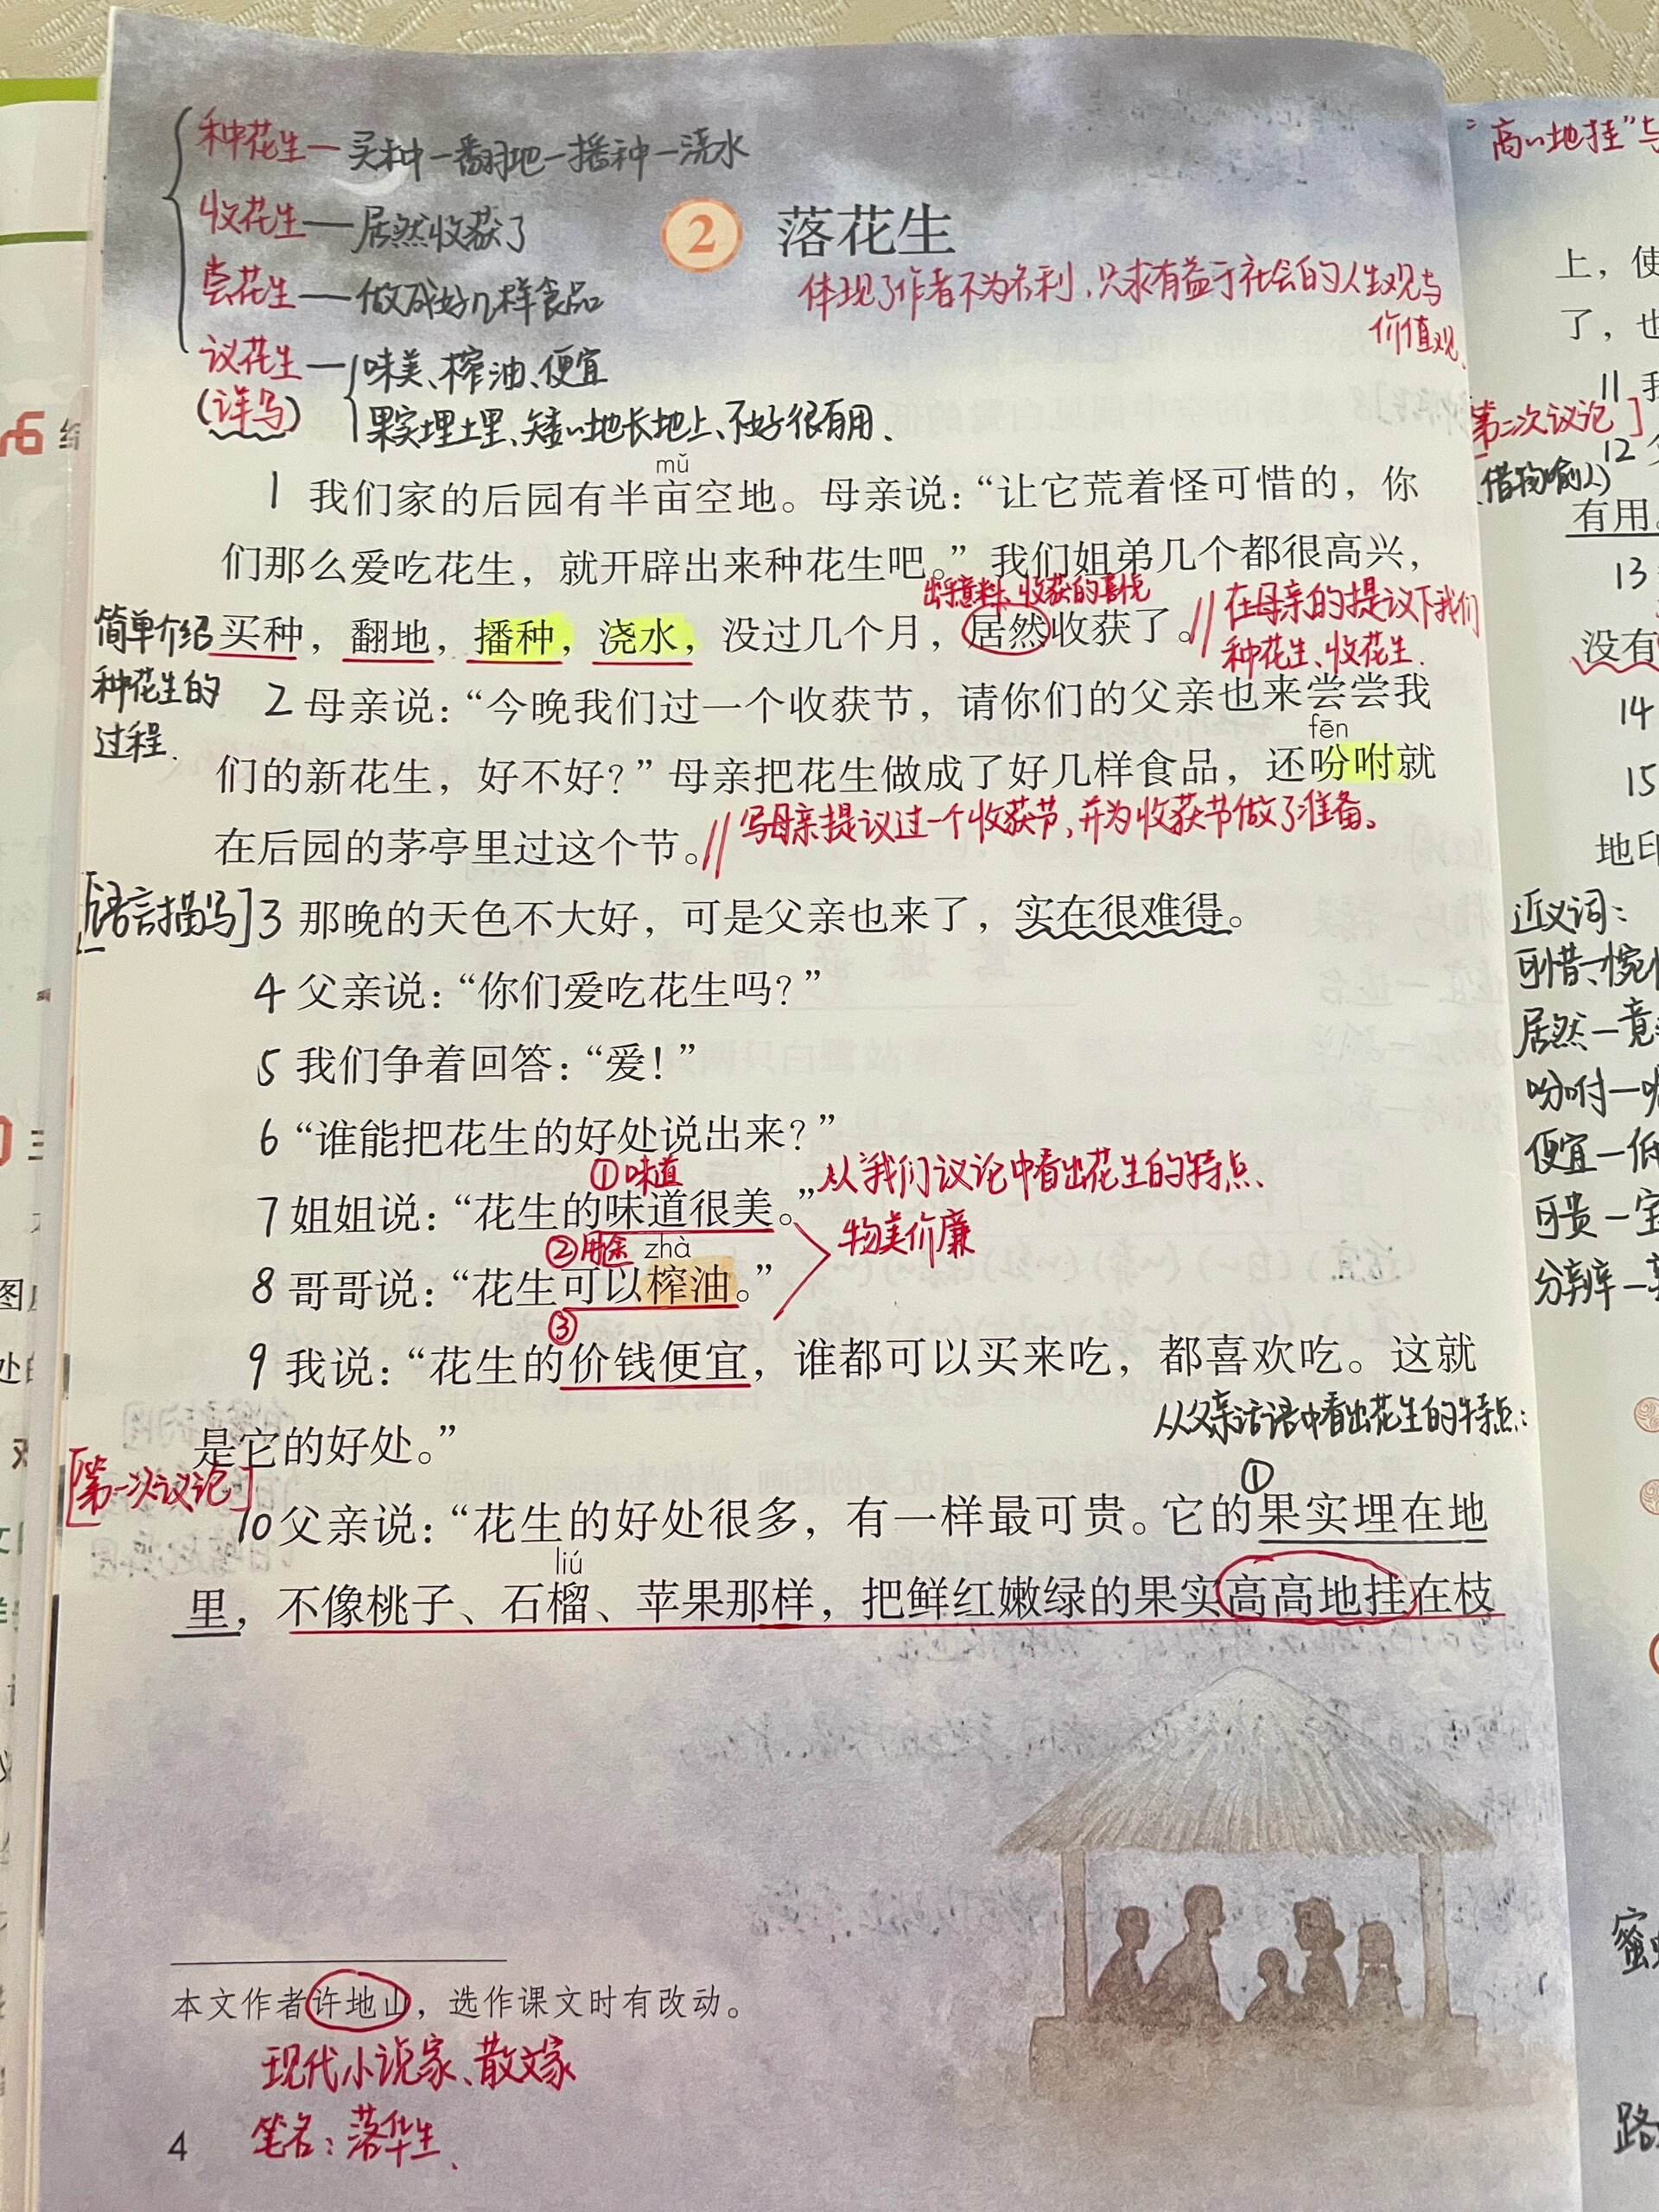 种花生—买种—翻地—播种—浇水
收花生—居然收获了
尝花生—做成好几样食品
议花生—味美、榨油、便宜
(详写)
果实埋土里、矮矮地长地上、不好看很有用、
2 落花生
体现了作者不为名利,只求有益于社会的人生观与
价值观、
mǔ
1 我们家的后园有半亩空地。母亲说:“让它荒着怪可惜的,你
们那么爱吃花生,就开辟出来种花生吧。”我们姐弟几个都很高兴,
出乎意料、收获的喜悦
简单介绍
种花生的
过程.
买种,翻地,播种,浇水,没过几个月,居然收获了。
//在母亲的提议下我们
种花生、收花生.
2 母亲说:“今晚我们过一个收获节,请你们的父亲也来尝尝我
fēn
们的新花生,好不好?”母亲把花生做成了好几样食品,还吩咐就
在后园的茅亭里过这个节。
//写母亲提议过一个收获节,并为收获节做了准备。
[语言描写]
3 那晚的天色不大好,可是父亲也来了,实在很难得。
4 父亲说:“你们爱吃花生吗?”
5 我们争着回答:“爱!”
6 “谁能把花生的好处说出来?”
①味道
7 姐姐说:“花生的味道很美。”
从“我们”议论中看出花生的特点、
物美价廉
②用途 zhà
8 哥哥说:“花生可以榨油。”
③
9 我说:“花生的价钱便宜,谁都可以买来吃,都喜欢吃。这就
是它的好处。”
从父亲话语中看出花生的特点:
[第一次议论]
①
10 父亲说:“花生的好处很多,有一样最可贵。它的果实埋在地
liú
里,不像桃子、石榴、苹果那样,把鲜红嫩绿的果实高高地挂在枝
本文作者许地山,选作课文时有改动。
现代小说家、散文家
笔名:落华生、
4
“高高地挂”与
上,使
了,也
11 我
第二次议论]
12 父
(借物喻人)
有用。
13
没有
14
15
地印
近义词:
可惜—惋惜
居然—竟
吩咐—
便宜—低
可贵—宝
分辨—
蜜
路